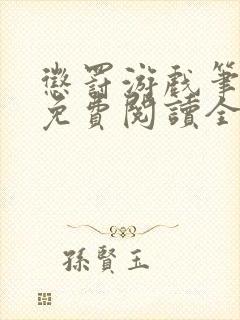 懲罰游戲筆
免費閱讀全
孫賢玉